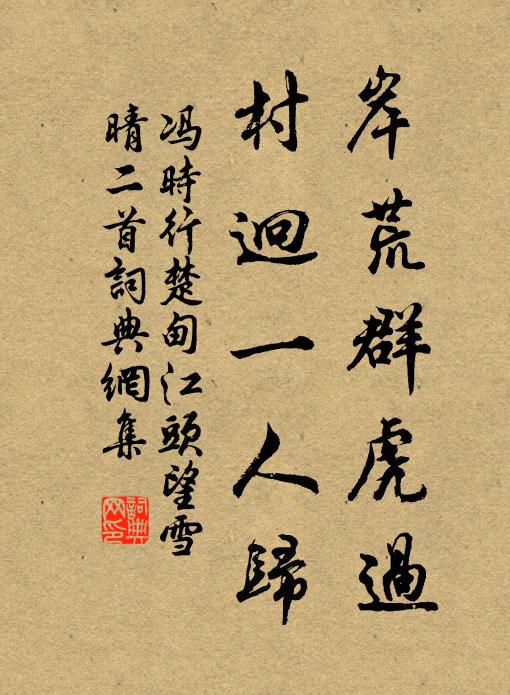 岸荒群虎過
村迥一人歸
冯時行楚甸江頭望雪
晴二首詞典網集
詞典網印